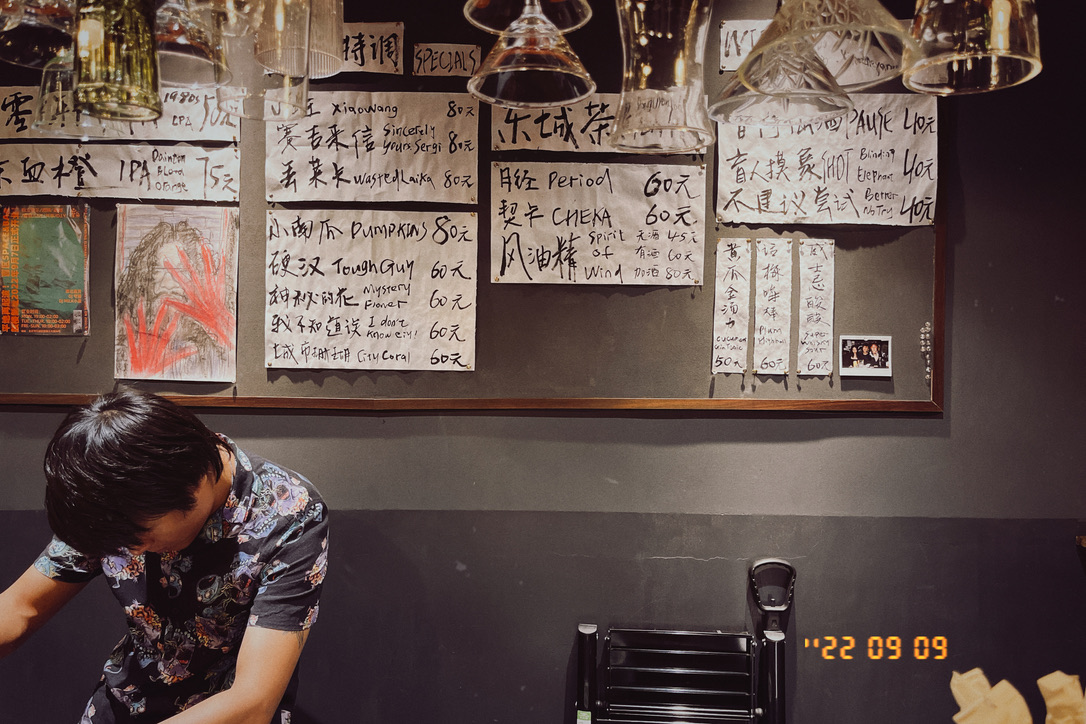 特调
SPECIALS
1980s
IPA
血橙 IPA Blood Orange 75元
XiaoWang 80元
赛吉来信 Sincerely Yours Sergi 80元
丢莱卡 Wasted Laika 80元
小南瓜 PUMPKINS 80元
硬汉 Tough Guy 60元
神秘的花 Mystery Flower 60元
我不知道该说 I don't know City! 60元
城市珊瑚 City Coral 60元
东城茶
月经 Period 60元
契卡 CHEKA 60元
风油精 Spirit of Wind
无酒 45元
有酒 60元
加酒 80元
PAUSE 40元
盲人摸象(HOT Blinding Elephant 40元
不建议尝试 Better No Try 40元
黄瓜金汤力
50元
话梅啤棒
Plum
60元
威士忌酸酸
Super Whisky Sour
60元
''22 09 09